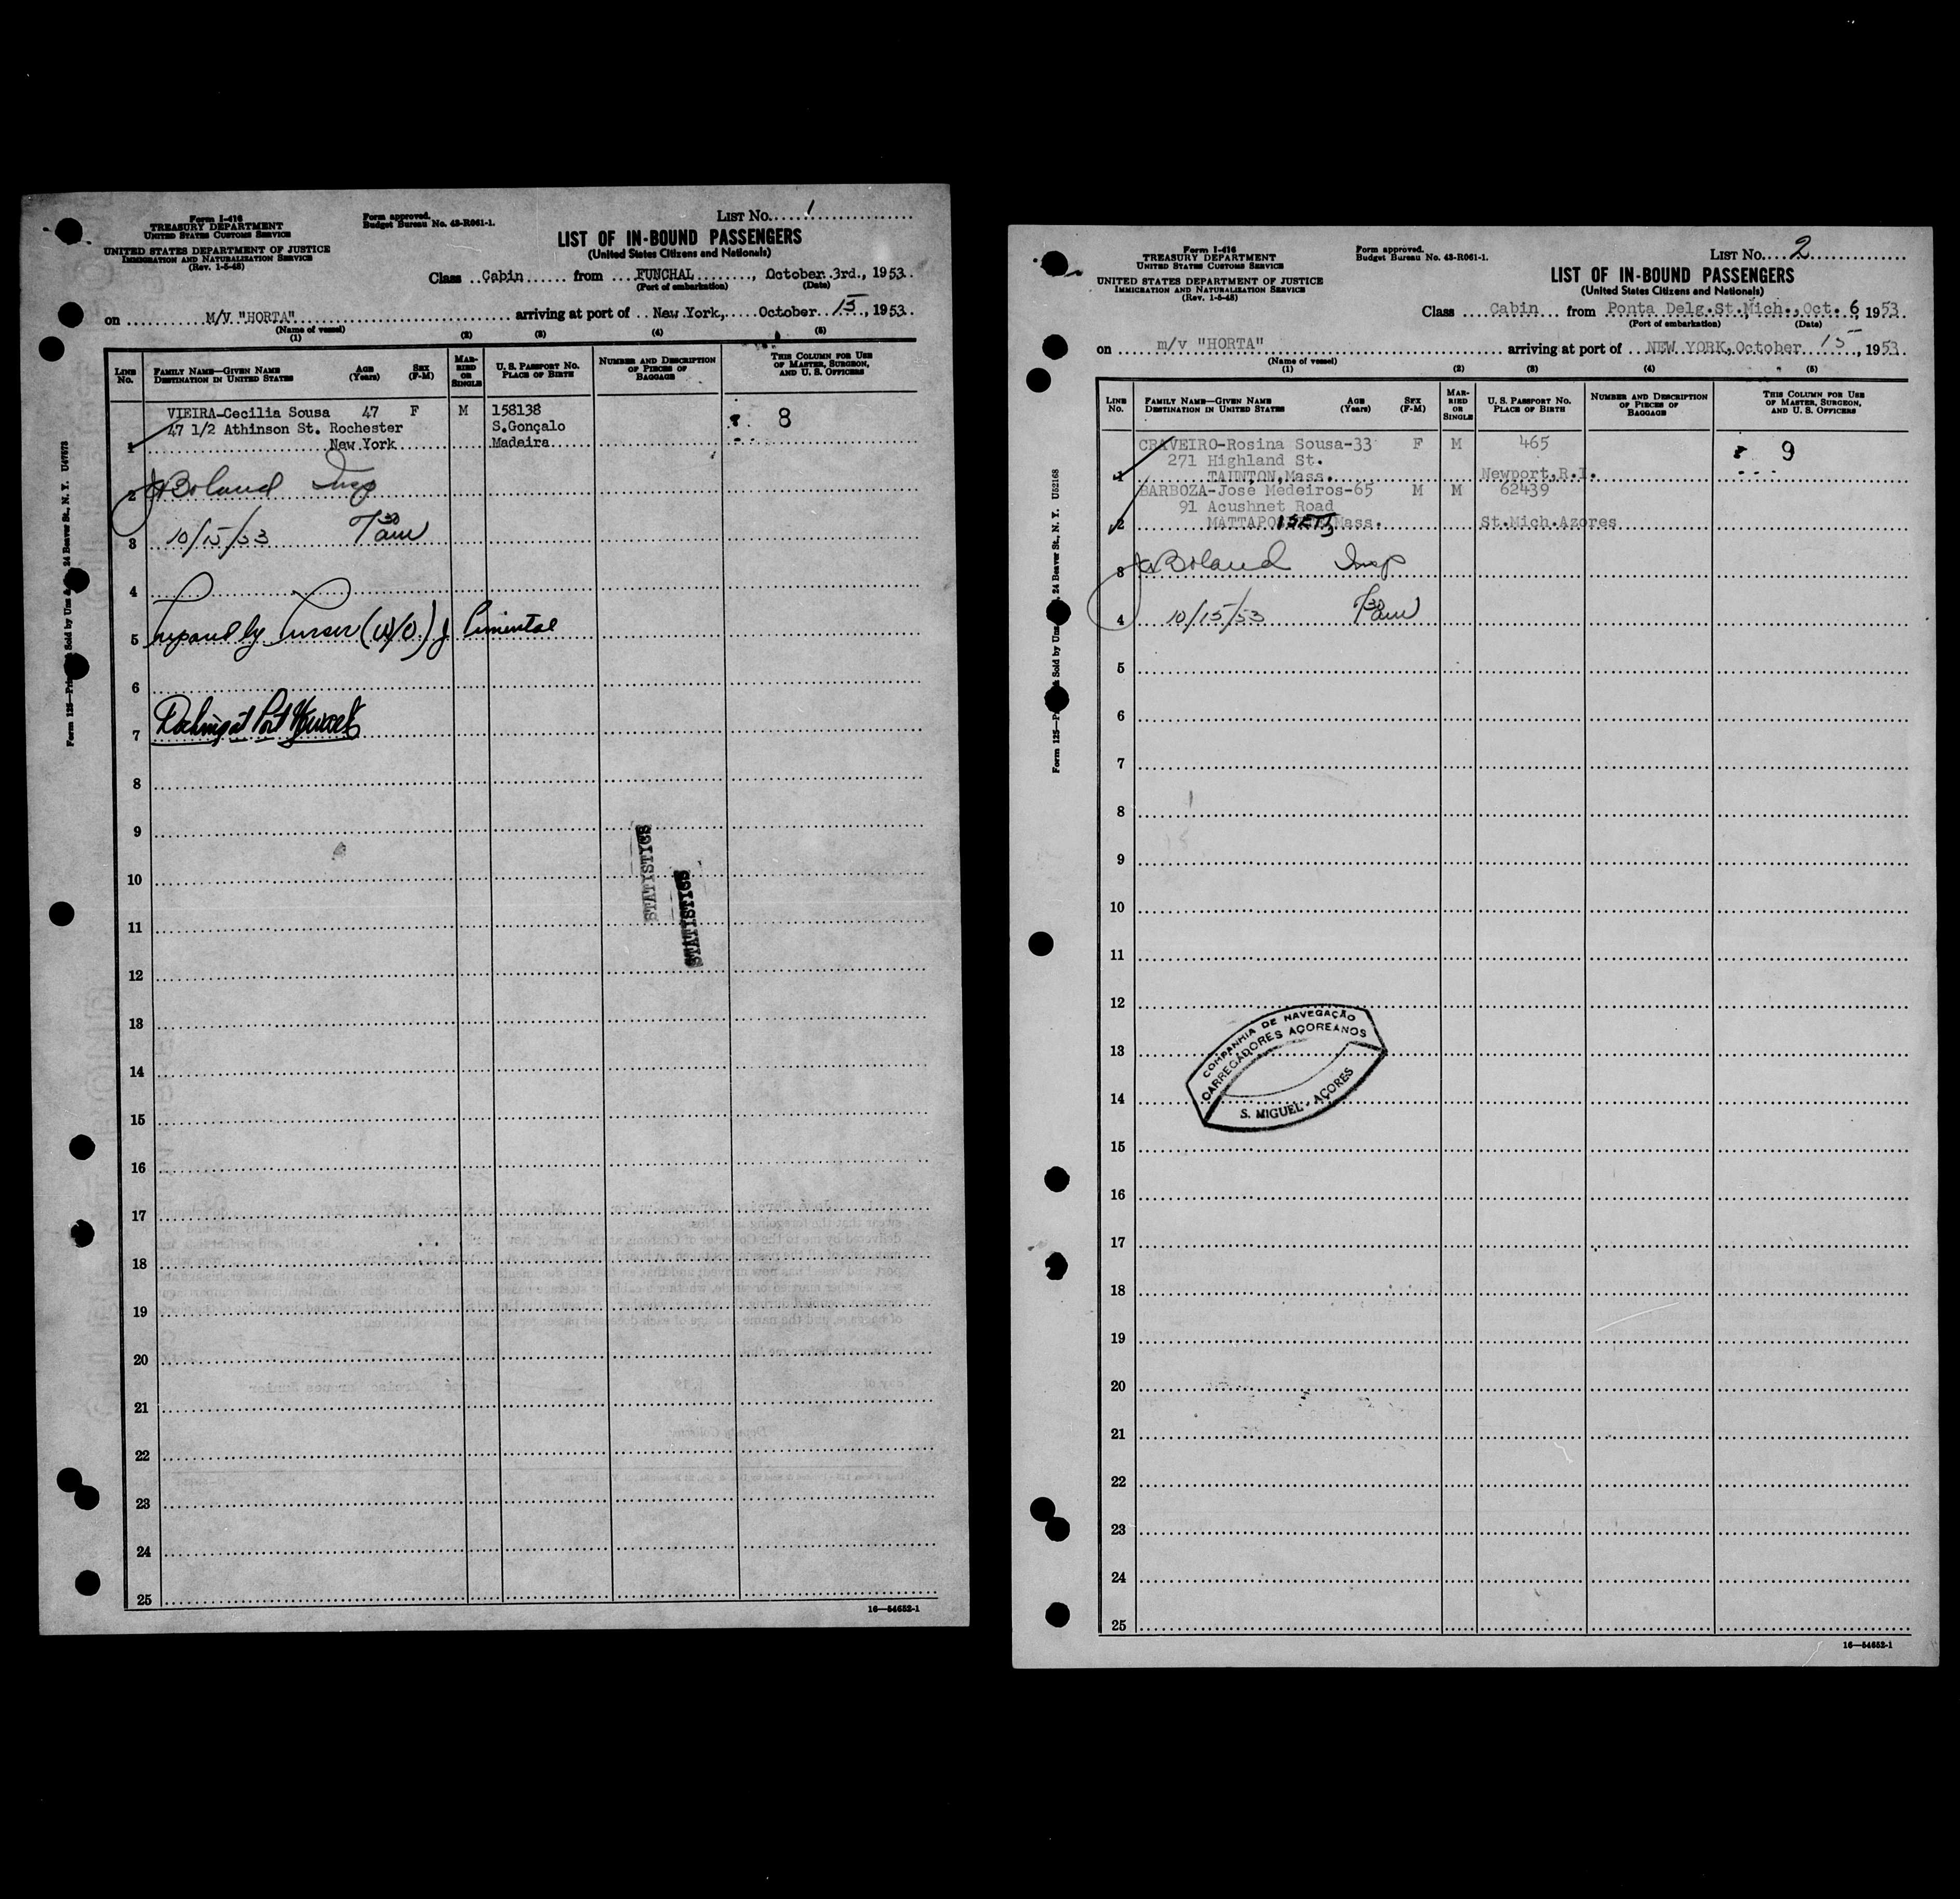 Form I-416
TREASURY DEPARTMENT
UNITED STATES CUSTOMS SERVICE
UNITED STATES DEPARTMENT OF JUSTICE
IMMIGRATION AND NATURALIZATION SERVICE
(Rev. 1-5-48)
Form approved.
Budget Bureau No. 43-R061-1.
LIST NO. 1
LIST OF IN-BOUND PASSENGERS
(United States Citizens and Nationals)
Class Cabin from FUNCHAL, October 3rd., 1953
(Port of embarkation) (Date)
on M/V "HORTA" arriving at port of New York, October 15, 1953
(Name of vessel)
(1) (2) (3) (4) (5)
LINE No. FAMILY NAME—GIVEN NAME DESTINATION IN UNITED STATES AGE (Years) SEX (F-M) MARRIED OR SINGLE U. S. PASSPORT NO. PLACE OF BIRTH NUMBER AND DESCRIPTION OF PIECES OF BAGGAGE THIS COLUMN FOR USE OF MASTER, SURGEON, AND U. S. OFFICERS
VIEIRA-Cecilia Sousa 47 F M 158138 8
47 1/2 Athinson St. Rochester S.Gonçalo
1 New York Madeira
2 Boland Insp
3 10/15/53 7 30 am
4
5 by Purser (W/O) J Pimental
6
7 at Port Newark
8
9
10
11
12
13
14
15
16
17
18
19
20
21
22
23
24
25
STATISTICS
STATISTICS
16—54652-1
24 Beaver St., N. Y. U47673
Form I-416
TREASURY DEPARTMENT
UNITED STATES CUSTOMS SERVICE
UNITED STATES DEPARTMENT OF JUSTICE
IMMIGRATION AND NATURALIZATION SERVICE
(Rev. 1-5-48)
Form approved.
Budget Bureau No. 43-R061-1.
LIST NO. 2
LIST OF IN-BOUND PASSENGERS
(United States Citizens and Nationals)
Class Cabin from Ponta Delg.St.Mich., Oct. 6, 1953
(Port of embarkation) (Date)
on m/v "HORTA" arriving at port of NEW YORK, October 15, 1953
(Name of vessel)
(1) (2) (3) (4) (5)
LINE No. FAMILY NAME—GIVEN NAME DESTINATION IN UNITED STATES AGE (Years) SEX (F-M) MARRIED OR SINGLE U. S. PASSPORT NO. PLACE OF BIRTH NUMBER AND DESCRIPTION OF PIECES OF BAGGAGE THIS COLUMN FOR USE OF MASTER, SURGEON, AND U. S. OFFICERS
CRAVEIRO-Rosina Sousa-33 F M 465 9
271 Highland St.
1 TAUNTON,Mass. Newport,R.I.
BARBOZA-José Medeiros-65 M M 62439
91 Acushnet Road
2 Mass. St.Mich.Azores
3 Boland Insp
4 10/15/53 7 30 am
5
6
7
8
9
10
11
12
13
14
15
16
17
18
19
20
21
22
23
24
25
COMPANHIA DE NAVEGAÇÃO
CARREGADORES AÇOREANOS
S. MIGUEL - AÇORES
16—54652-1
24 Beaver St., N. Y. U52168